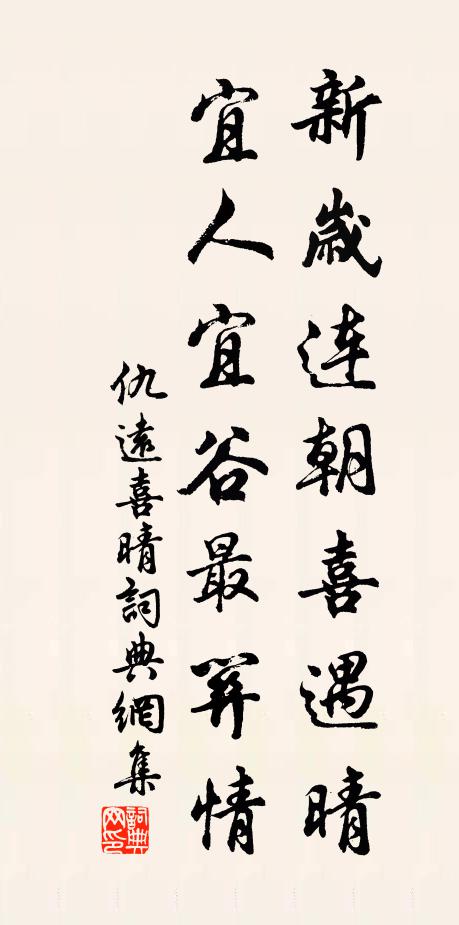 新歲連朝喜遇晴
宜人宜谷最關情
仇遠喜晴詞典網集
詞典网印